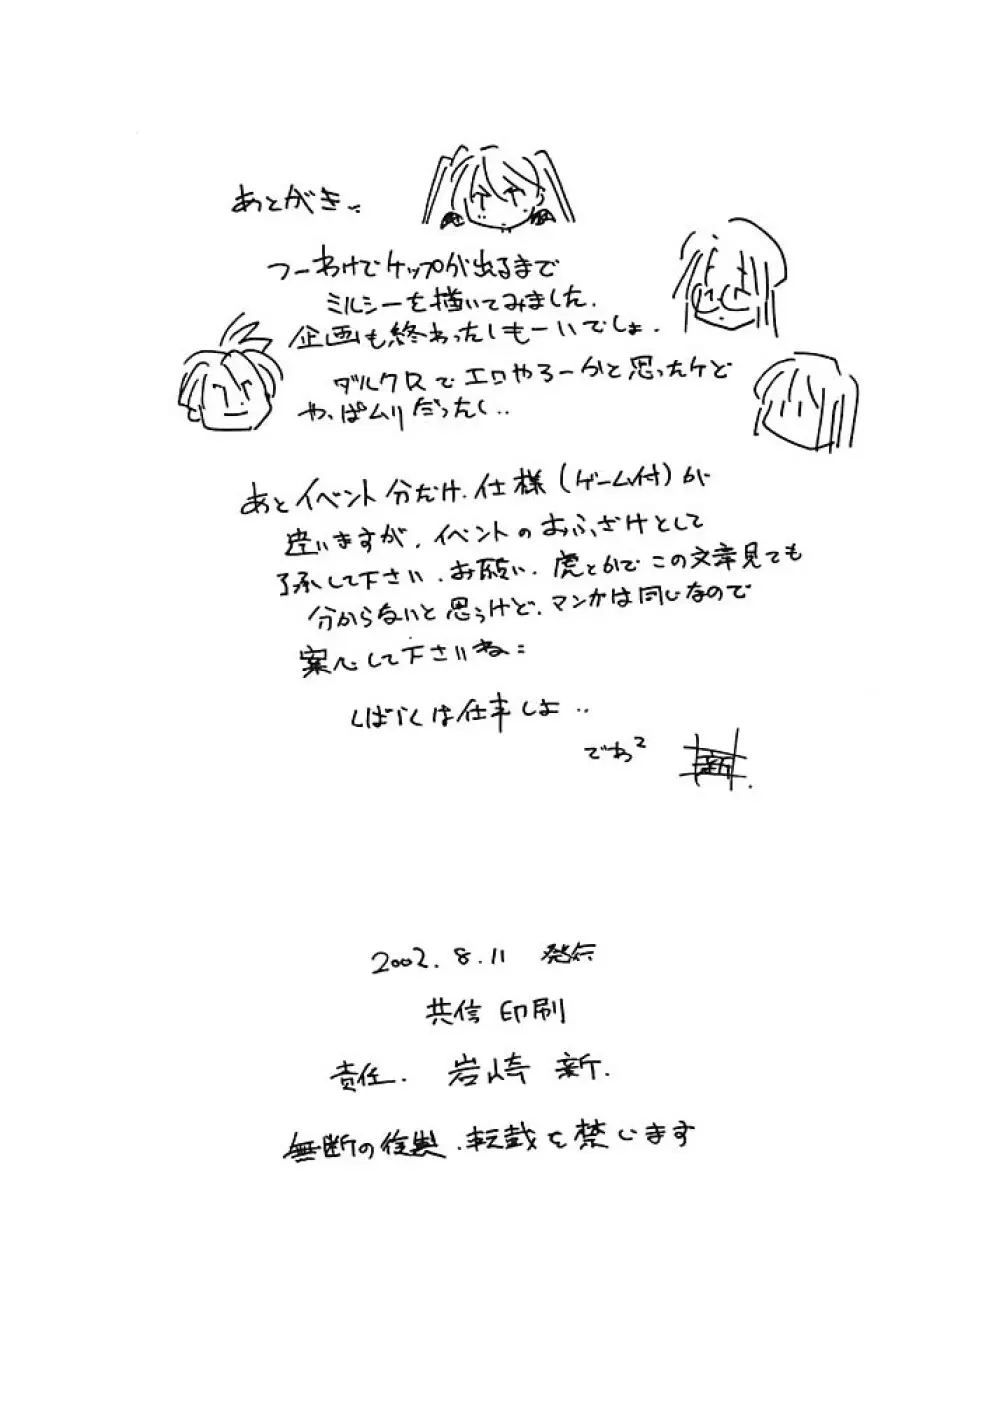 あとがき..
つーわけでケップが出るまで
ミルシーを描いてみました.
企画も終わったしもーいいでしょ.
ダルクロでエロやろーかと思ったケど
やっぱムリだったし..
あとイベント分だけ.仕様(ゲーム付)が
違いますが.イベントのおふざけとして
了承して下さい.お願い.虎とかでこの文章見ても
分からないと思うけど.マンガは同じなので
案心して下さいね
しばらくは仕事しよ..
でわっ
新.
2002.8.11 発行
共信印刷
責任. 岩崎 新.
無断の複製.転載を禁じます